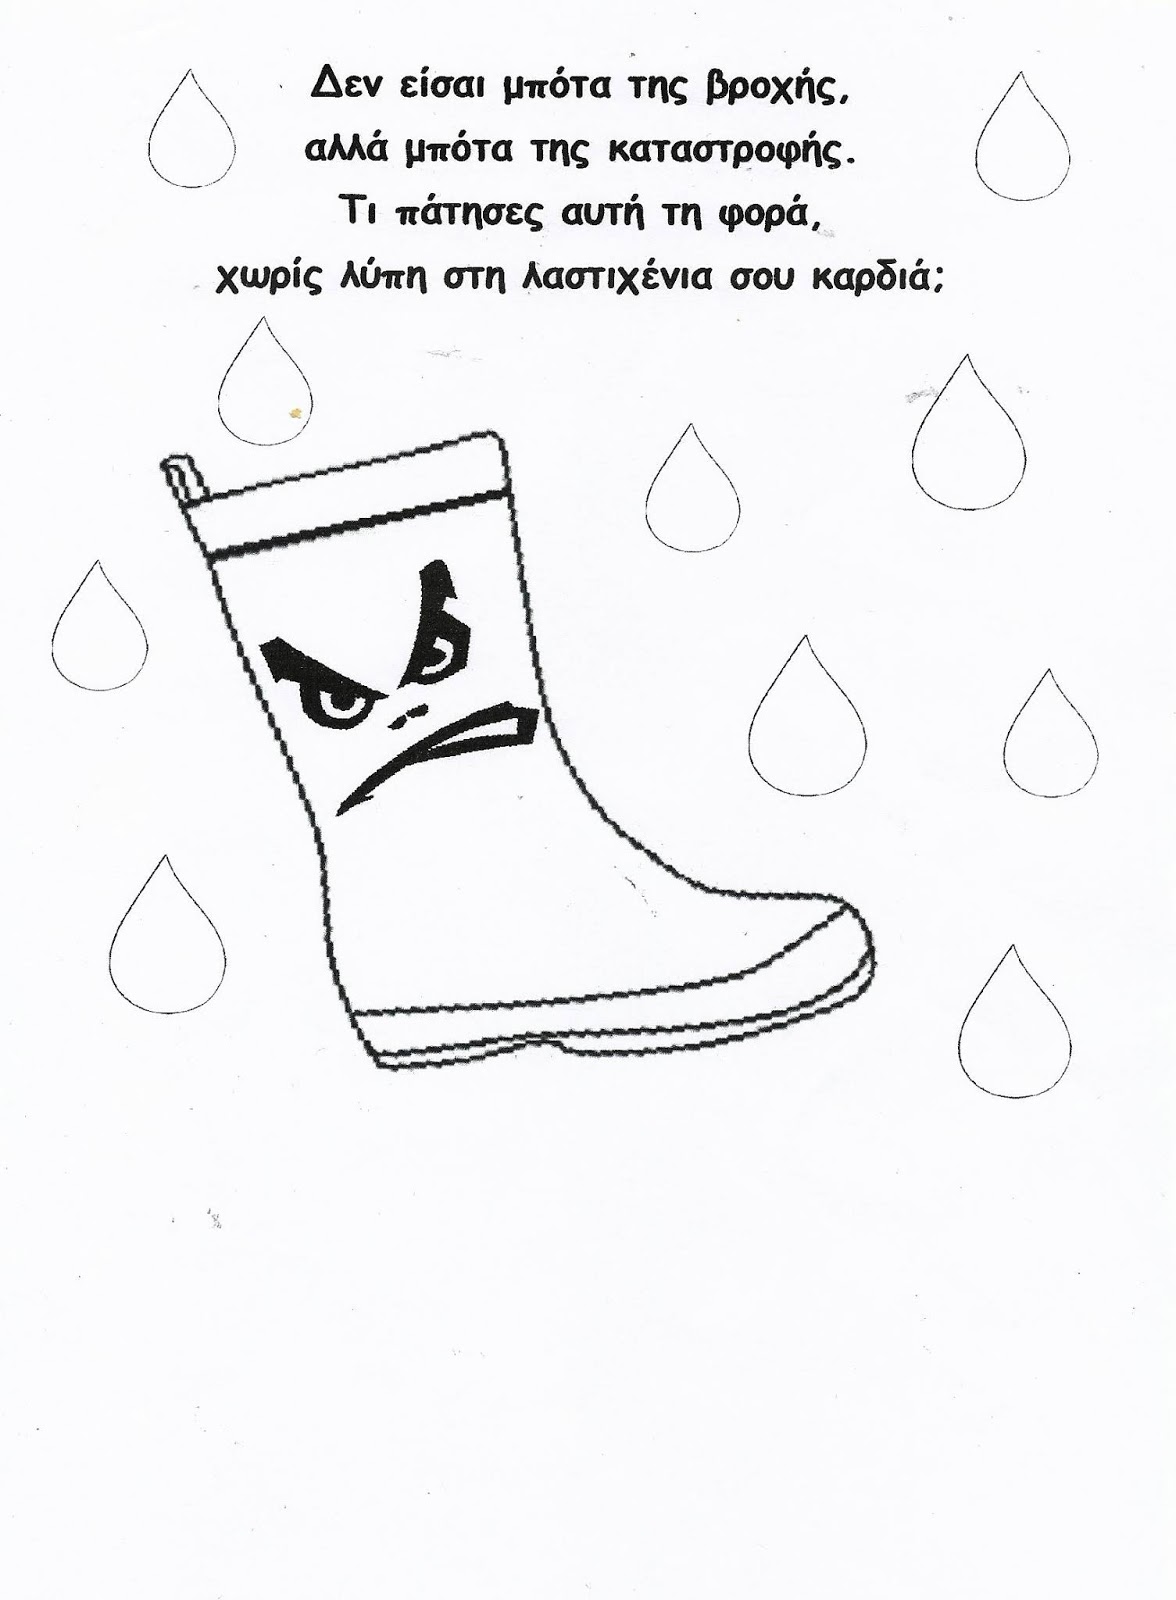 Δεν είσαι μπότα της βροχής,
αλλά μπότα της καταστροφής.
Τι πάτησες αυτή τη φορά,
χωρίς λύπη στη λαστιχένια σου καρδιά;